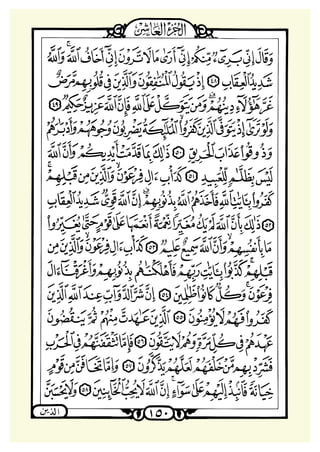 الجزء العاشر
وَقَالَ إِنِّى بَرِىٓءٌ مِّنكُمْ إِنِّىٓ أَرَىٰ مَا لَا تَرَوْنَ إِنِّىٓ أَخَافُ ٱللَّهَ وَٱللَّهُ
شَدِيدُ ٱلْعِقَابِ ٤٨ إِذْ يَقُولُ ٱلْمُنَٰفِقُونَ وَٱلَّذِينَ فِى قُلُوبِهِم مَّرَضٌ
غَرَّ هَٰٓؤُلَآءِ دِينُهُمْ وَمَن يَتَوَكَّلْ عَلَى ٱللَّهِ فَإِنَّ ٱللَّهَ عَزِيزٌ حَكِيمٌ ٤٩
وَلَوْ تَرَىٰٓ إِذْ يَتَوَفَّى ٱلَّذِينَ كَفَرُوا۟ ٱلْمَلَٰٓئِكَةُ يَضْرِبُونَ وُجُوهَهُمْ وَأَدْبَٰرَهُمْ
وَذُوقُوا۟ عَذَابَ ٱلْحَرِيقِ ٥٠ ذَٰلِكَ بِمَا قَدَّمَتْ أَيْدِيكُمْ وَأَنَّ ٱللَّهَ
لَيْسَ بِظَلَّٰمٍ لِّلْعَبِيدِ ٥١ كَدَأْبِ ءَالِ فِرْعَوْنَ وَٱلَّذِينَ مِن قَبْلِهِمْ
كَفَرُوا۟ بِـَٔايَٰتِ ٱللَّهِ فَأَخَذَهُمُ ٱللَّهُ بِذُنُوبِهِمْ إِنَّ ٱللَّهَ قَوِىٌّ شَدِيدُ ٱلْعِقَابِ
٥٢ ذَٰلِكَ بِأَنَّ ٱللَّهَ لَمْ يَكُ مُغَيِّرًا نِّعْمَةً أَنْعَمَهَا عَلَىٰ قَوْمٍ حَتَّىٰ يُغَيِّرُوا۟
مَا بِأَنفُسِهِمْ وَأَنَّ ٱللَّهَ سَمِيعٌ عَلِيمٌ ٥٣ كَدَأْبِ ءَالِ فِرْعَوْنَ وَٱلَّذِينَ مِن
قَبْلِهِمْ كَذَّبُوا۟ بِـَٔايَٰتِ رَبِّهِمْ فَأَهْلَكْنَٰهُم بِذُنُوبِهِمْ وَأَغْرَقْنَآ ءَالَ
فِرْعَوْنَ وَكُلٌّ كَانُوا۟ ظَٰلِمِينَ ٥٤ إِنَّ شَرَّ ٱلدَّوَآبِّ عِندَ ٱللَّهِ ٱلَّذِينَ
كَفَرُوا۟ فَهُمْ لَا يُؤْمِنُونَ ٥٥ ٱلَّذِينَ عَٰهَدتَّ مِنْهُمْ ثُمَّ يَنقُضُونَ
عَهْدَهُمْ فِى كُلِّ مَرَّةٍ وَهُمْ لَا يَتَّقُونَ ٥٦ فَإِمَّا تَثْقَفَنَّهُمْ فِى ٱلْحَرْبِ
فَشَرِّدْ بِهِم مَّنْ خَلْفَهُمْ لَعَلَّهُمْ يَذَّكَّرُونَ ٥٧ وَإِمَّا تَخَافَنَّ مِن قَوْمٍ
خِيَانَةً فَٱنۢبِذْ إِلَيْهِمْ عَلَىٰ سَوَآءٍ إِنَّ ٱللَّهَ لَا يُحِبُّ ٱلْخَآئِنِينَ ٥٨ وَلَا يَحْسَبَنَّ
١٥٠
الذين